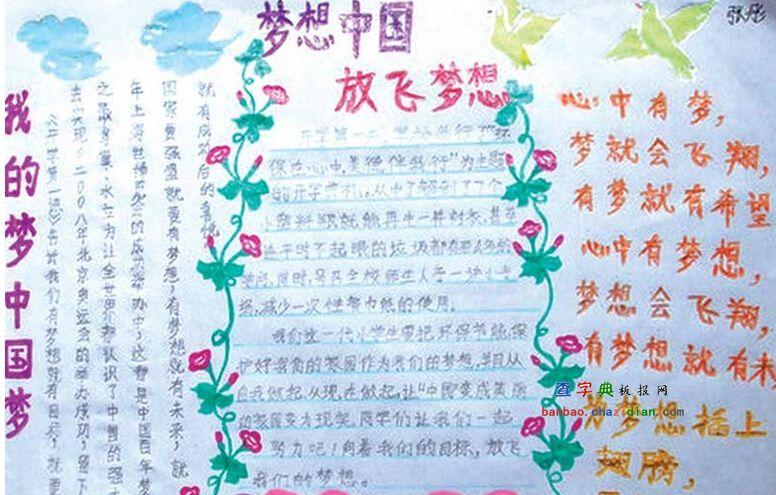 梦想中国
张彤
放飞梦想
我的梦中国梦
就有成功后的喜悦
国家更强盛就要有梦想,有梦想就有未来,就
年上海世博览会的成功举办中,这都是中国百年梦
之最鸟巢、水立方让全世界都认识了中国的强大
去实现。二00八年北京奥运会的举办成功,留下
《开学第一课》告诉我们有梦想就有目标,就要
开学第一天,学校举行"环
保在心中,美德伴我行"为主题
的开学典礼。从中了解到了7个
塑料瓶就能再生一件
平时不起眼的垃圾都有
同时,号召全校师生人手一块小毛
,减少一次性餐巾纸的使用。
我们这一代小学生要把环保节能,保
护好我们的家园作为我们的梦想,并且从
自我做起,从现在做起,让"中国"变成美丽
的家园变为现实,同学们让我们一起
努力吧!向着我们的目标,放飞
我们的梦想。
心中有梦,
梦就会飞翔,
有梦就有希望
心中有梦想,
梦想会飞翔,
有梦想就有未
为梦想插上
翅膀,
查字典板报网
banbao.chazidian.com